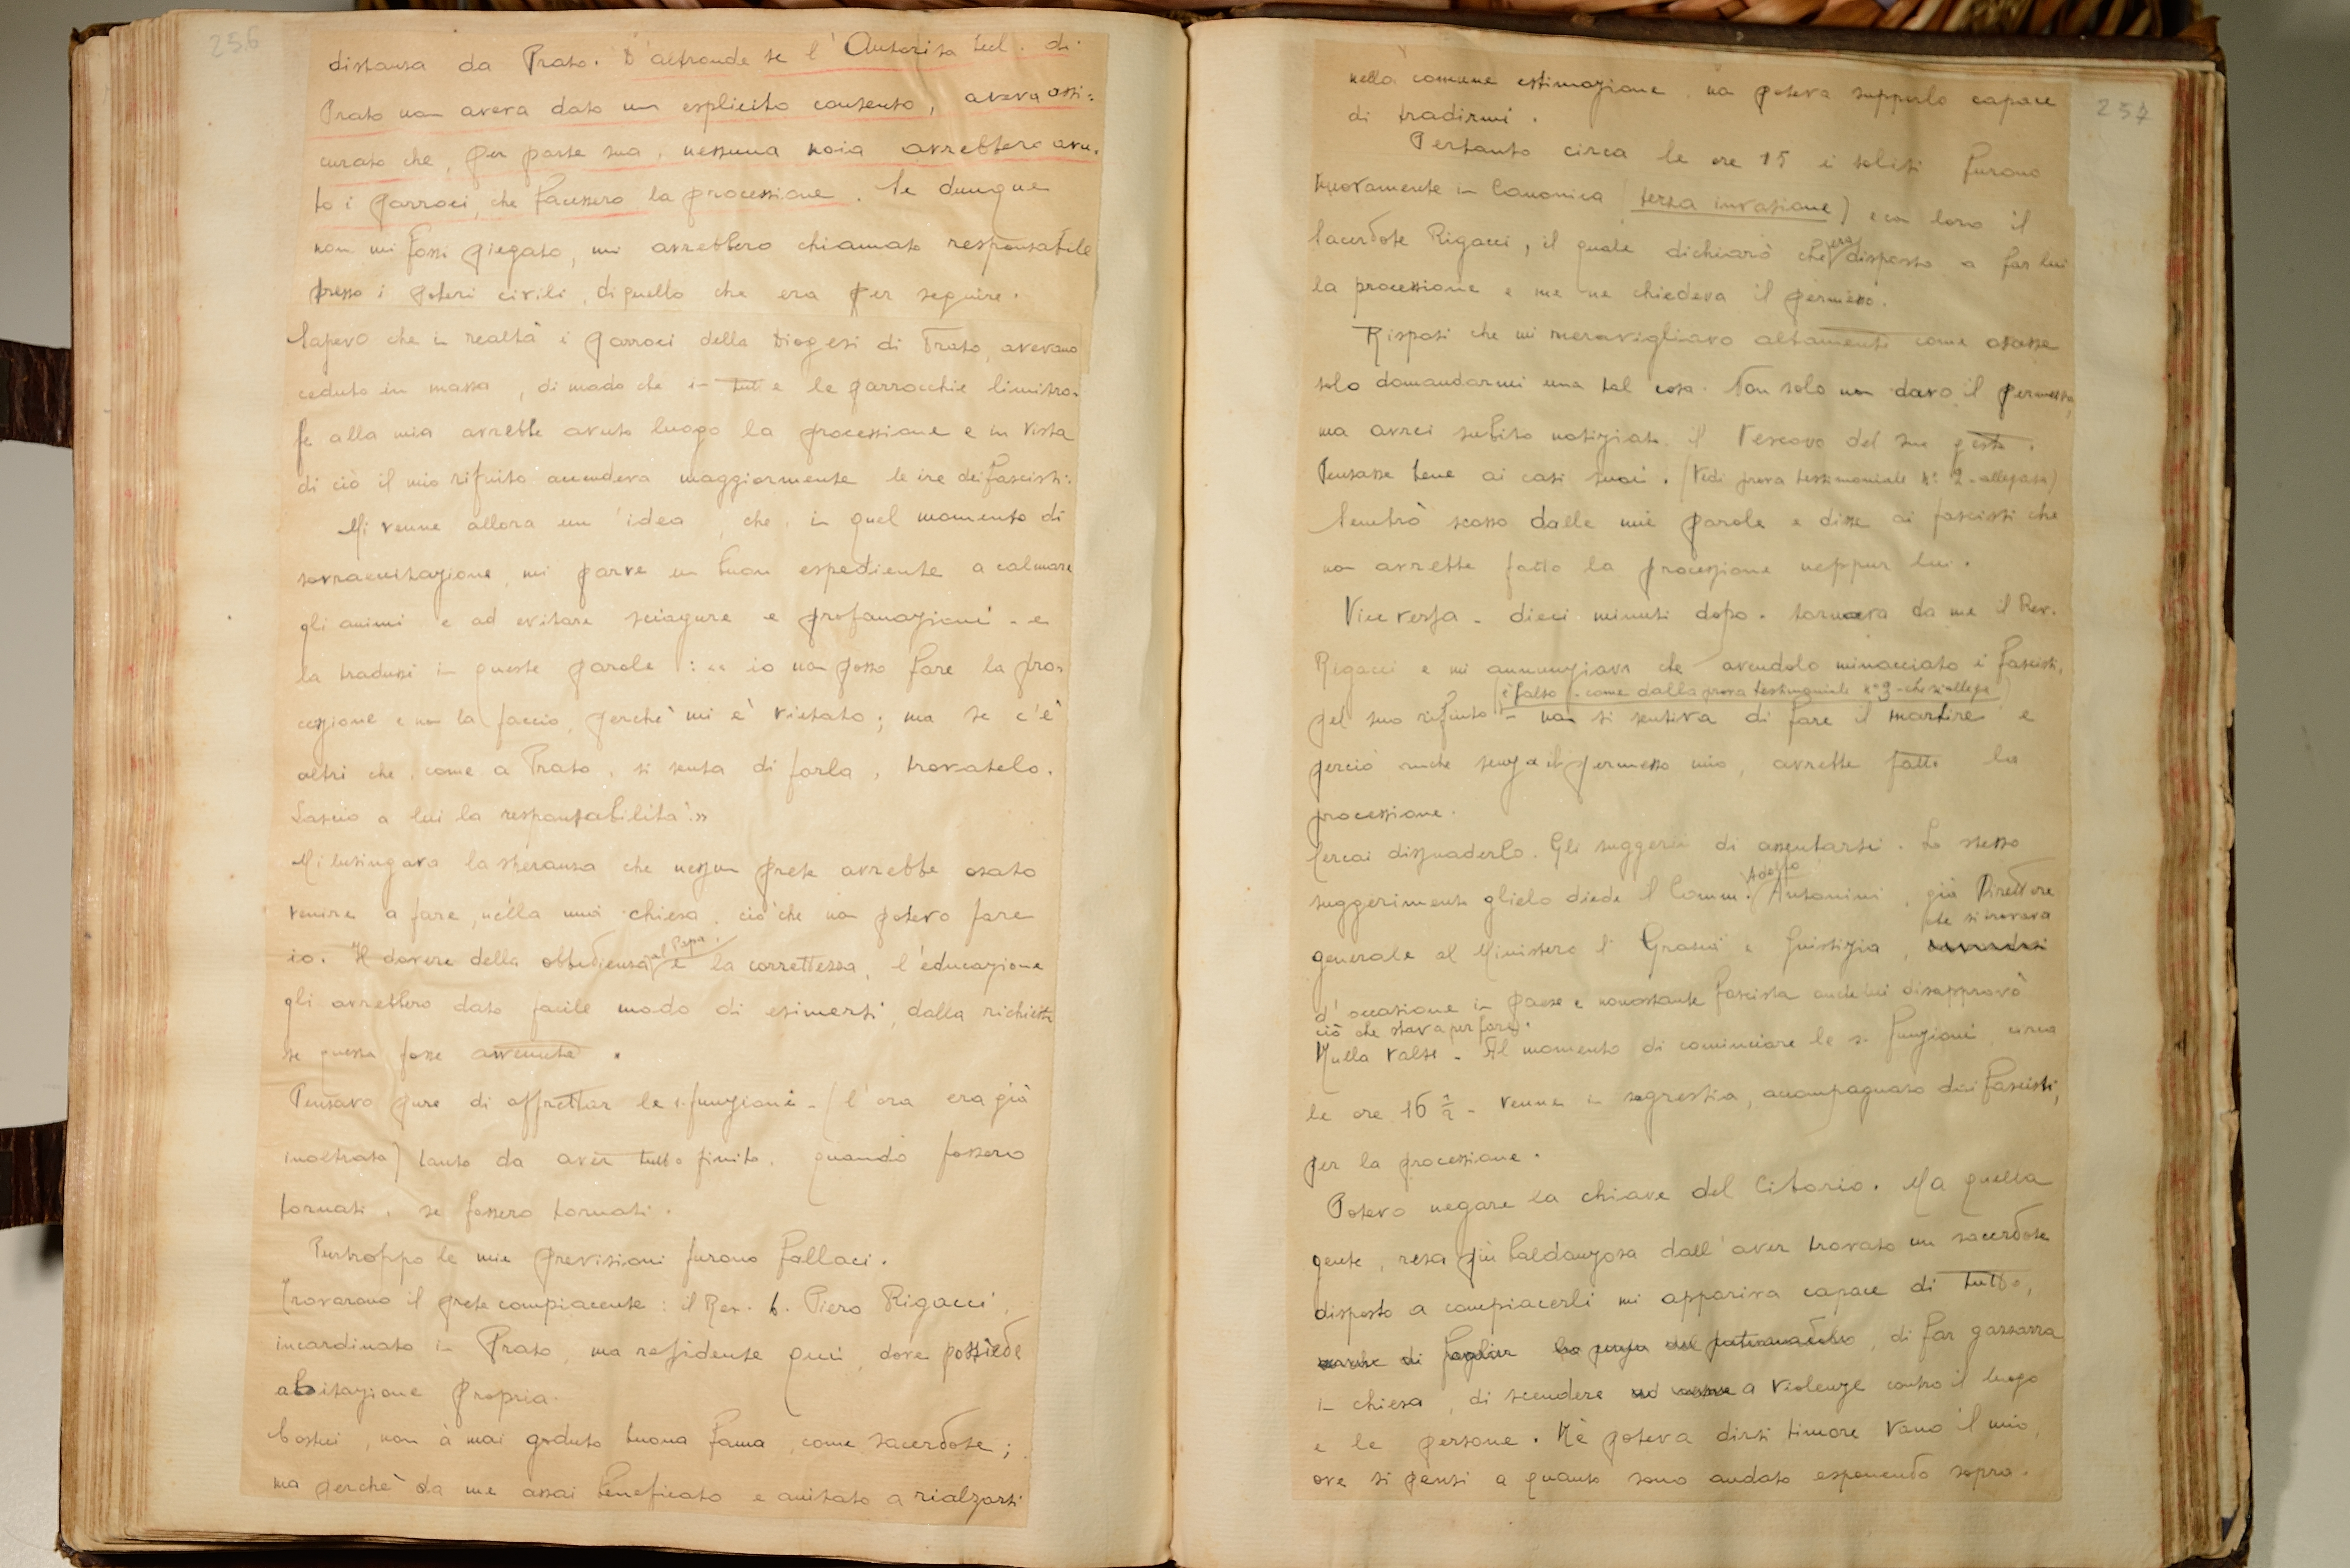 256
distanza da Prato. D'altronde se l'Autorità Eccl. di
Prato non aveva dato un esplicito consenso, aveva assi=
curato che, per parte sua, nessuna noia avrebbero avu=
to i parroci, che facessero la processione. Se dunque
non mi fossi piegato, mi avrebbero chiamato responsabile
presso i poteri civili, di quello che era per seguire.
Sapevo che in realtà i parroci della Diogesi di Prato, avevano
ceduto in massa, di modo che in tutte le parrocchie limitro=
fe alla mia avrebbe avuto luogo la processione e in vista
di ciò il mio rifiuto accendeva maggiormente le ire dei fascisti.
Mi venne allora un'idea, che, in quel momento di
sovraccitazione, mi parve un buon espediente a calmare
gli animi e ad evitare sciagure e profanazioni - e
la tradussi in queste parole: «io non posso fare la pro=
cessione e non la faccio, perchè mi è vietato; ma se c'è
altri che, come a Prato, si senta di farla, trovatelo.
Lascio a lui la responsabilità.»
Mi lusingava la speranza che nessun prete avrebbe osato
venire a fare, nella mia chiesa, ciò che non potevo fare
io. Il dovere della obbedienza al Papa, e la correttezza, l'educazione
gli avrebbero dato facile modo di esimersi, dalla richiesta
se questa fosse avvenuta.
Pensavo pure di affrettar le s. funzioni - (l'ora era già
inoltrata) tanto da aver tutto finito, quando fossero
tornati, se fossero tornati.
Purtroppo le mie previsioni furono fallaci.
Trovarono il prete compiacente: il Rev. D. Piero Rigacci,
incardinato in Prato, ma residente qui, dove possiede
abitazione propria.
Costui, non à mai goduto buona fama, come sacerdote;
ma perchè da me assai beneficato e aiutato a rialzarsi
257
nella comune estimazione, non poteva supporlo capace
di tradirmi.
Pertanto circa le ore 15 i soliti furono
nuovamente in Canonica (terza invasione) e con loro il
Sacerdote Rigacci, il quale dichiarò che era disposto a far lui
la processione e me ne chiedeva il permesso.
Risposi che mi meravigliavo altamente come osasse
solo domandarmi una tal cosa. Non solo non davo il permesso,
ma avrei subito notiziato il Vescovo del suo gesto.
Pensasse bene ai casi suoi. (Vedi prova testimoniale N° 2 - allegata)
Sembrò scosso dalle mie parole e disse ai fascisti che
non avrebbe fatto la processione neppur lui.
Viceversa - dieci minuti dopo - tornava da me il Rev.
Rigacci e mi annunziava che avendolo minacciato i fascisti,
(è falso - come dalla prova testimoniale n° 3 - che si allega)
pel suo rifiuto - non si sentiva di fare il martire e
perciò anche senza il permesso mio, avrebbe fatto la
processione.
Cercai disuaderlo. Gli suggerii di assentarsi. Lo stesso
suggerimento glielo diede il Comm. Adelfo Antonini, già Direttore
generale al Ministero di Grazia e Giustizia, che si trovava
d'occasione in paese e nonostante fascista anche lui disapprovò
ciò che stava per fare.
Nulla valse - Al momento di cominciare le s. funzioni, circa
le ore 16 ½ - venne in sagrestia, accompagnato dai fascisti,
per la processione.
Potevo negare la chiave del Ciborio. Ma quella
gente, resa più baldanzosa dall'aver trovato un sacerdote
disposto a compiacerli mi appariva capace di tutto,
di far gazzarra
in chiesa, di scendere a violenze contro il luogo
e le persone. Nè poteva dirsi timore vano il mio,
ove si pensi a quanto sono andato esponendo sopra.